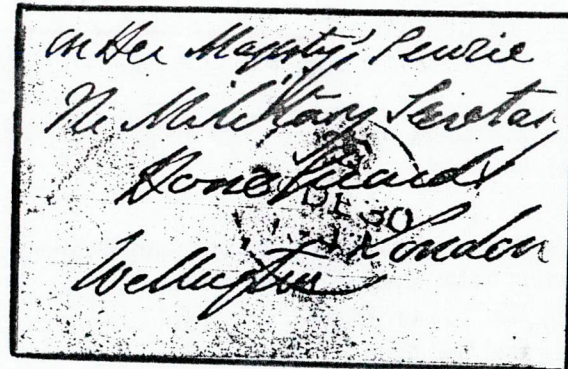 On Her Majesty's Service
The Military Secretar
Horse Guards
DE 30
London
Wellington